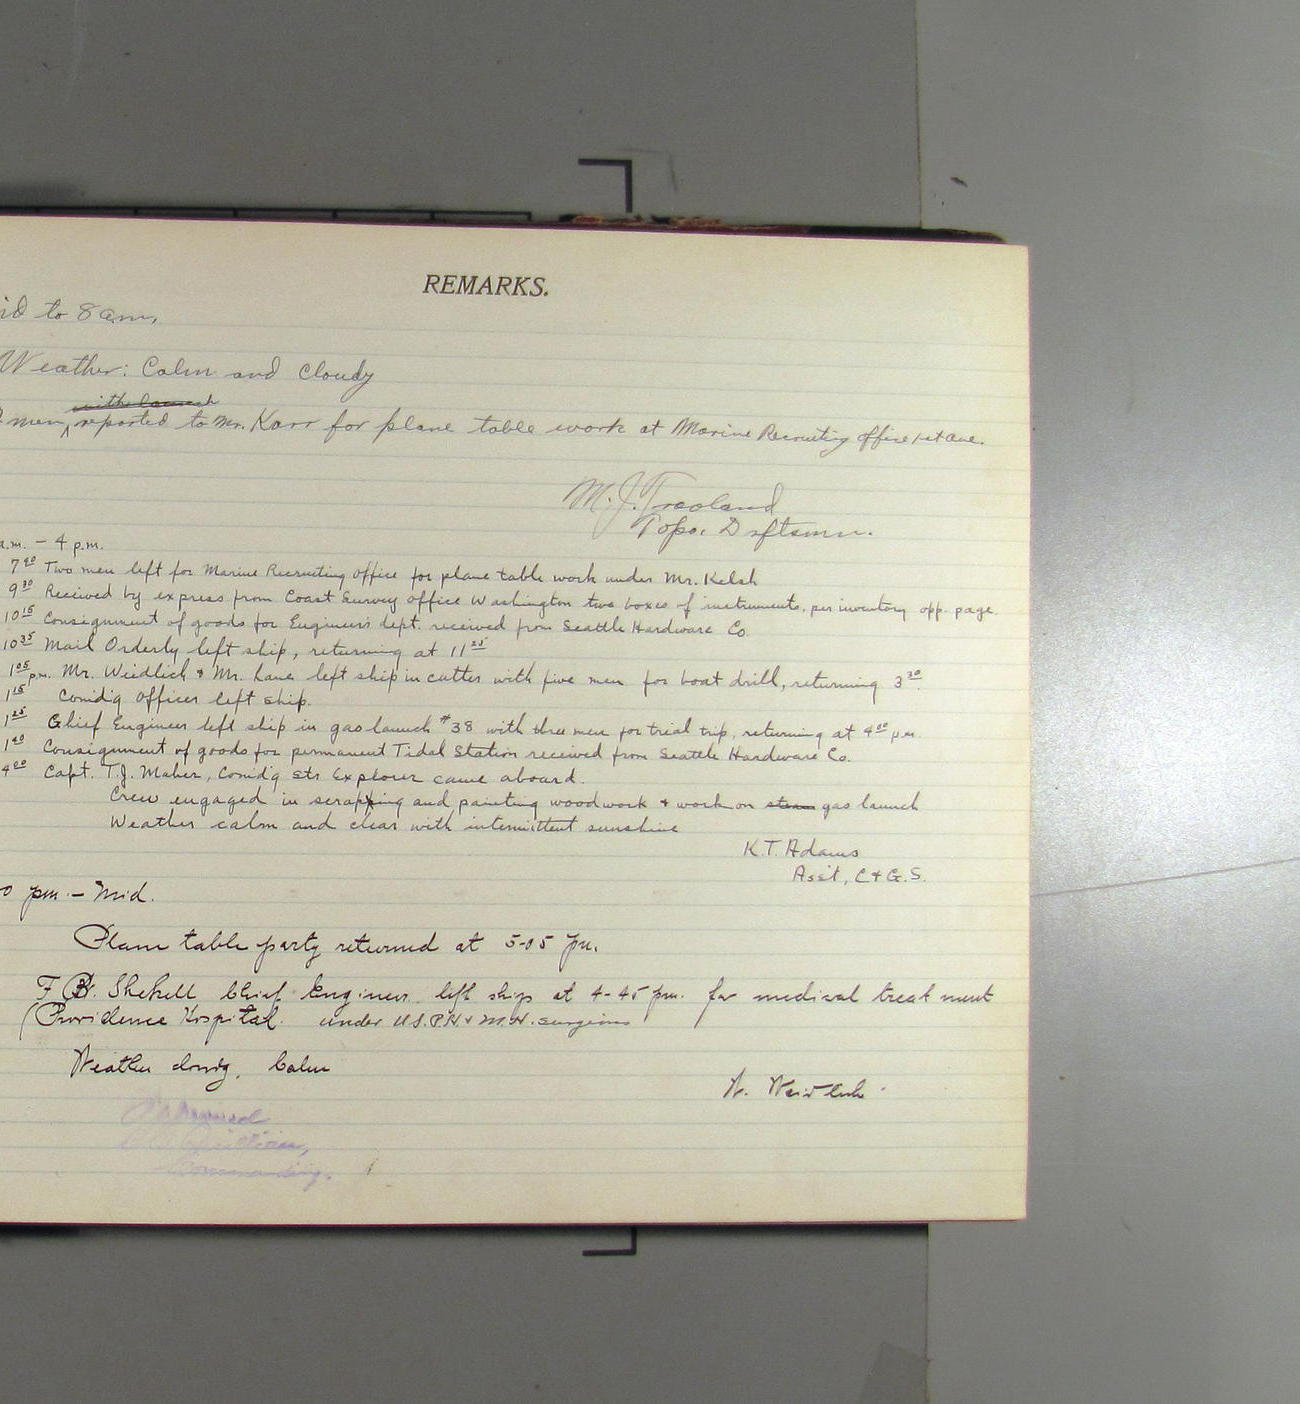 REMARKS.
id to 8 am.
Weather: Calm and Cloudy
with launch
men, reported to Mr. Karr for plane table work at Marine Recruiting Office 1st Ave.
M. J. Trooland
Topo. Dftsmn.
a.m. - 4 p.m.
7 40 Two men left for Marine Recruiting Office for plane table work under Mr. Kelsh
9 30 Received by express from Coast Survey Office Washington two boxes of instruments, per inventory opp. page
10 15 Consignment of goods for Engineer's dept. received from Seattle Hardware Co.
10 35 Mail Orderly left ship, returning at 11 25
1 05 p.m. Mr. Weidlich & Mr. Lane left ship in cutter with five men for boat drill, returning 3 30
1 15 Comd'g Officer left ship.
1 25 Chief Engineer left ship in gas launch #38 with three men for trial trip, returning at 4 00 p.m.
1 40 Consignment of goods for permanent Tidal Station received from Seattle Hardware Co.
4 00 Capt. T.J. Maher, Comd'g Str Explorer came aboard.
Crew engaged in scrapping and painting woodwork & work on steam gas launch
Weather calm and clear with intermittent sunshine
K.T. Adams
Asst, C & G.S.
0 pm - Mid.
Plane table party returned at 5-05 pm.
F B. Shekell Chief Engineer left ship at 4-45 pm. for medical treatment
(Providence Hospital. under U.S.P.H. & M.H. surgeons
Weather cloudy. Calm
W. Weidlich
Commanding.